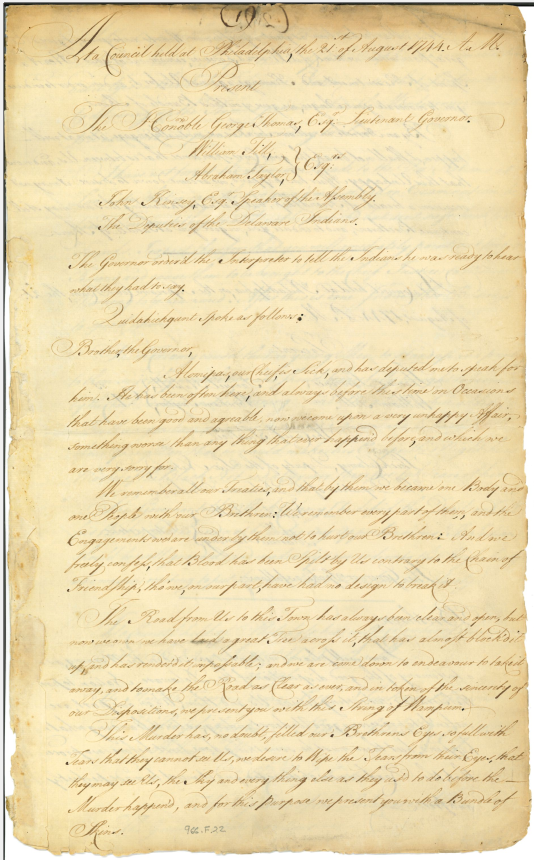 (192)
At a Council held at Philadelphia, the 21st of August 1744. A. M.
Present
The Honoble George Thomas, Esqr. Lieutenant Governor.
William Till,
Abraham Taylor, } Esqrs
John Kinsey, Esqr. Speaker of the Assembly.
The Deputies of the Delaware Indians.
The Governor order'd the Interpreter to tell the Indians he was ready to hear
what they had to say.
Quidahickgunt Spoke as follows:
Brother, the Governor,
Alomipas, our Chief, is Sick, and has deputed me to speak for
him. He has been often here, and always before this time on Occasions
that have been good and agreable, now we come upon a very unhappy Affair,
something worse than any thing that ever happend before, and which we
are very sorry for.
We remember all our Treaties, and that by them we became one Body and
one People with our Brethren: We remember every part of them, and the
Engagements we are under by them not to hurt our Brethren: And we
freely confess, that Blood has been Spilt by Us contrary to the Chain of
Friendship; tho' we, on our part, have had no design to break it.
The Road from Us to this Town has always been clean and open, but
now we own we have laid a great Tree across it, that has almost block'd it
up, and has render'd it impassable; and we are come down to endeavour to take it
away, and to make the Road as Clear as ever, and in token of the sincerity of
our Dispositions, we present you with this String of Wampum.
This Murder has, no doubt, filled our Brethrens Eyes so full with
Tears that they cannot see Us, we desire to Wipe the Tears from their Eyes, that
they may see Us, the Sky and every thing else as they us'd to do before the
Murder happend, and for this Purpose we present you with a Bundle of
Skins.
966.F.22